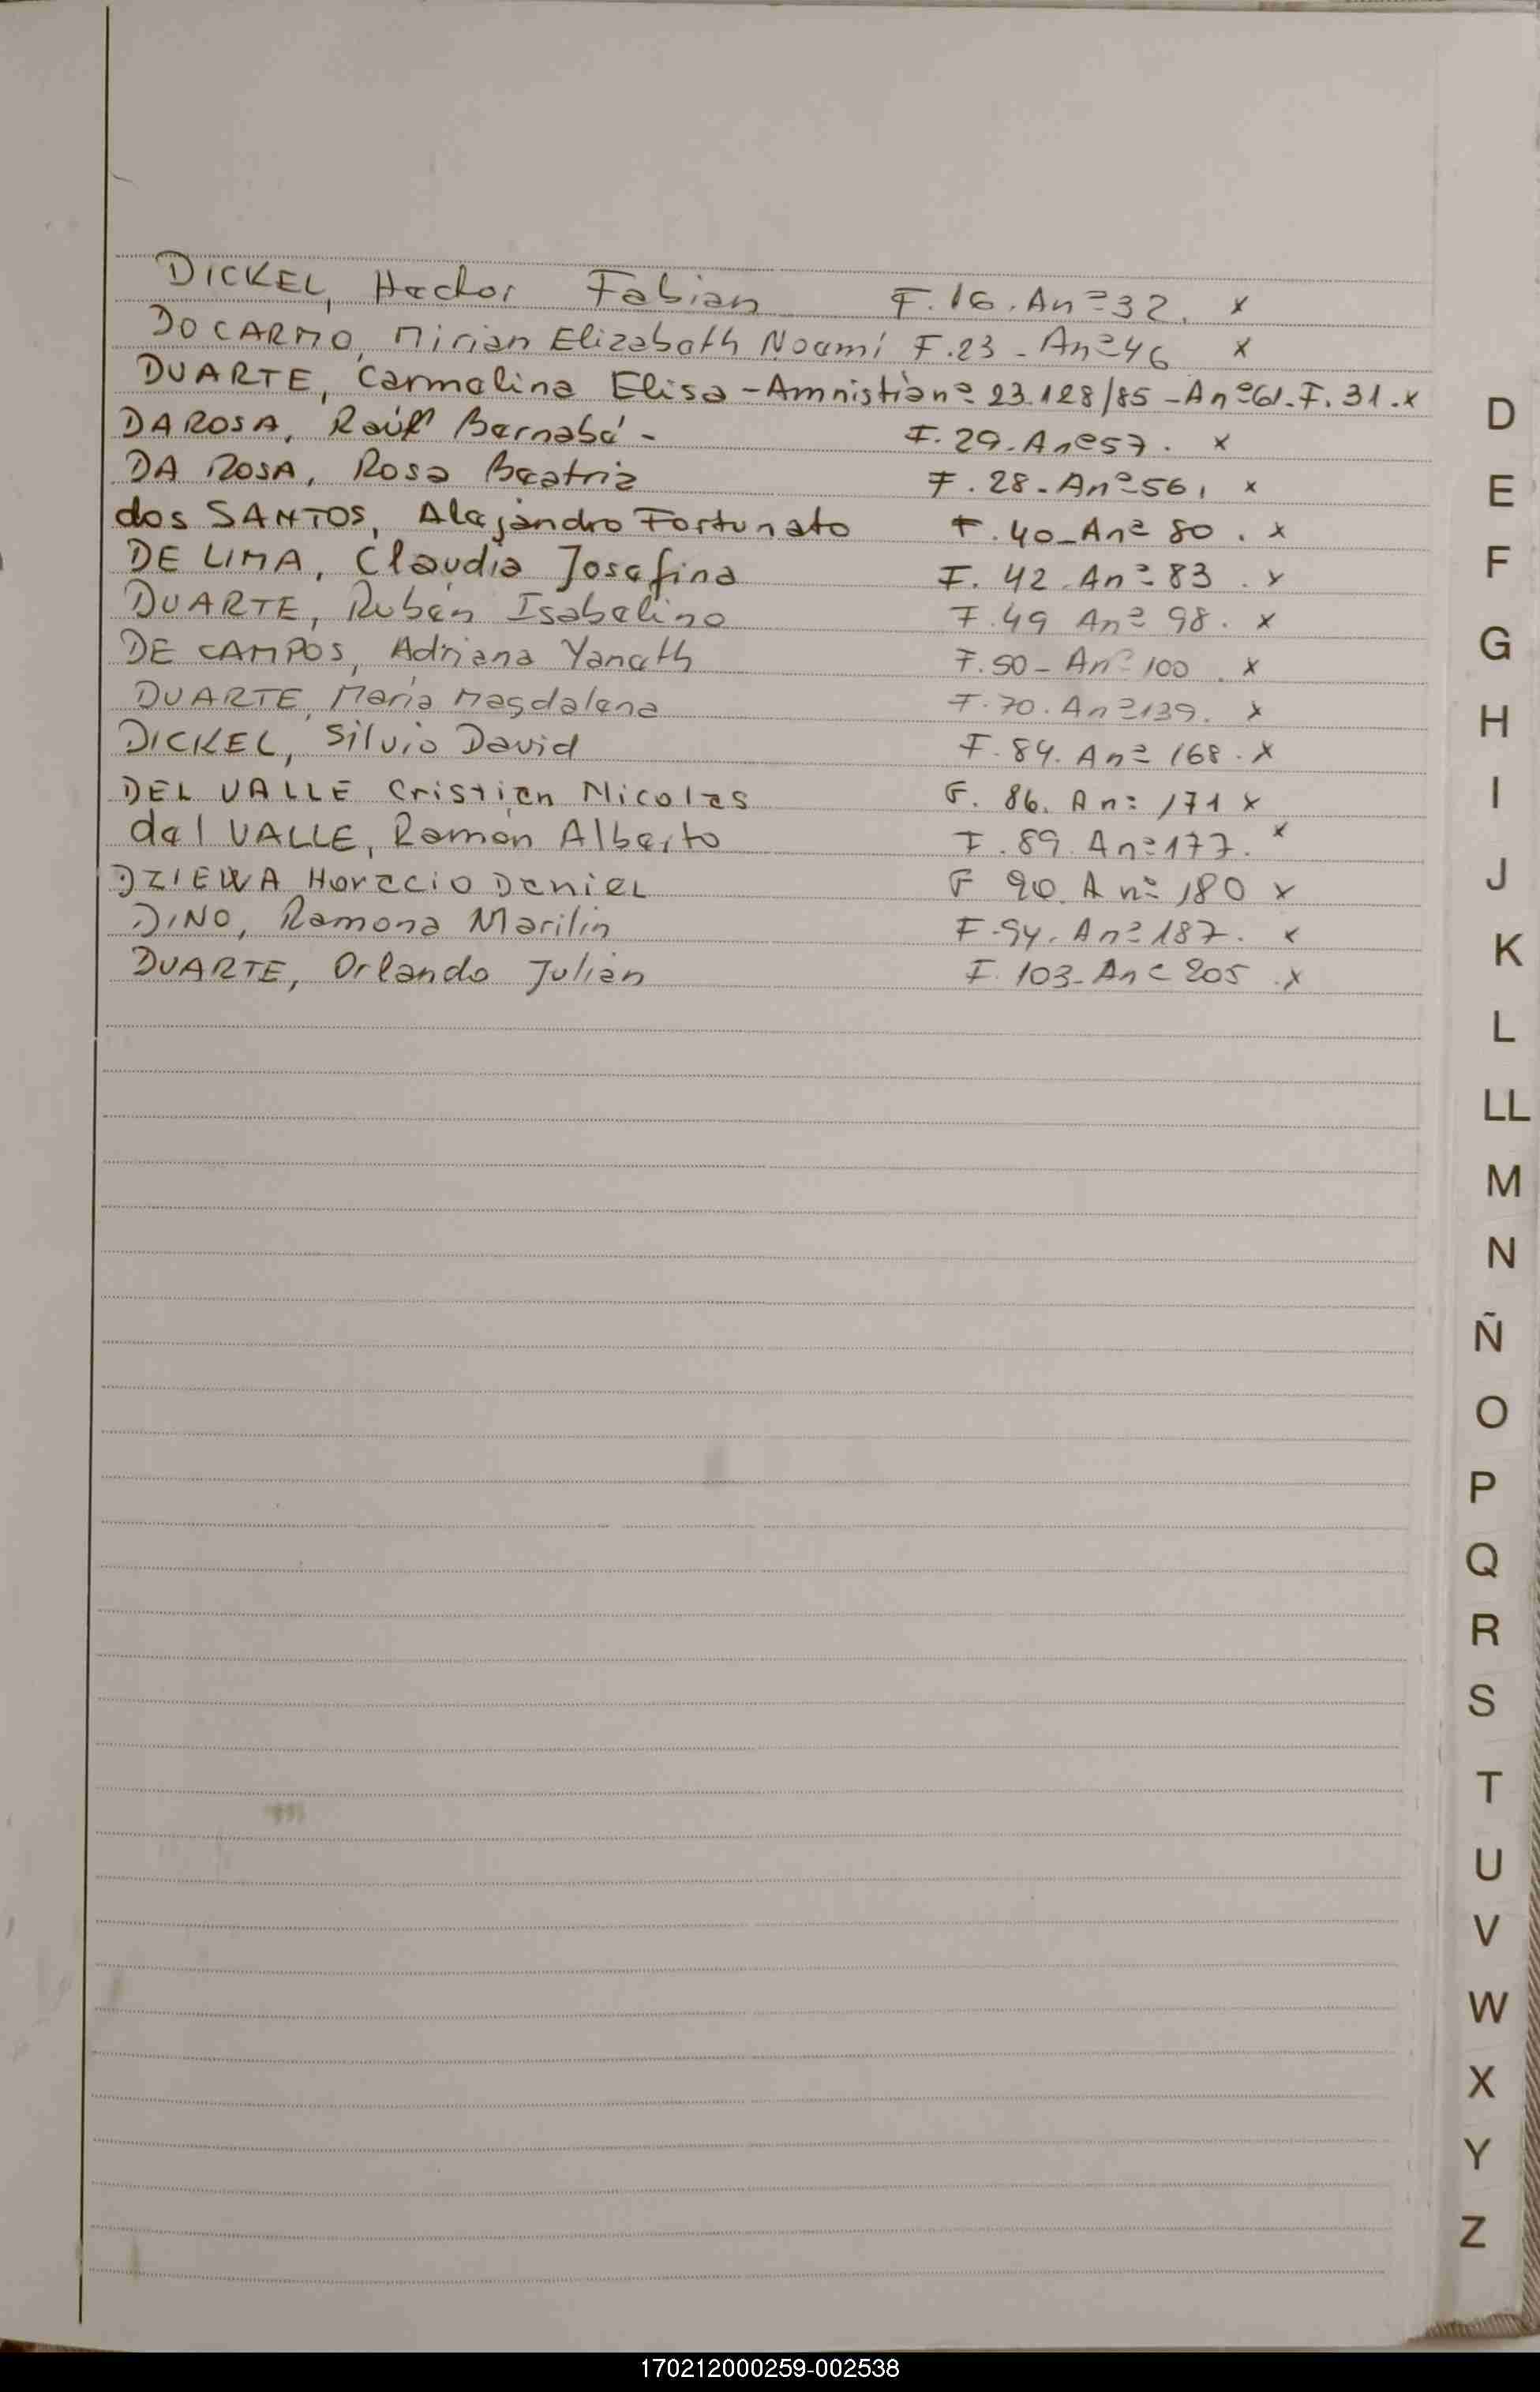 DICKEL, Hector Fabian F. 16. An=32. x
DO CARMO, Mirian Elizabeth Noemí F.23 - Anº46 x
DUARTE, Carmelina Elisa - Amnistia nº 23.128/85 - Anº61. F. 31. x
DA ROSA, Raúl Bernabé - F. 29. Anº57. x
DA ROSA, Rosa Beatriz F. 28. Anº56, x
dos SANTOS, Alejandro Fortunato F. 40 - Anº 80. x
DE LIMA, Claudia Josefina F. 42. Anº 83. x
DUARTE, Rubén Isabelino F. 49 Anº 98. x
DE CAMPOS, Adriana Yaneth F. 50 - Anº 100. x
DUARTE, María Magdalena F. 70. Anº139. x
DICKEL, Silvio David F. 84. Anº 168. x
DEL VALLE Cristian Nicolas F. 86. An: 171 x
del VALLE, Ramón Alberto F. 89. Anº177. x
DZIEWA Horacio Daniel F 90. A nº 180 x
DINO, Ramona Marilin F. 94. Anº187. x
DUARTE, Orlando Julián F. 103 - Anº 205. x
D
E
F
G
H
I
J
K
L
LL
M
N
Ñ
O
P
Q
R
S
T
U
V
W
X
Y
Z
170212000259-002538